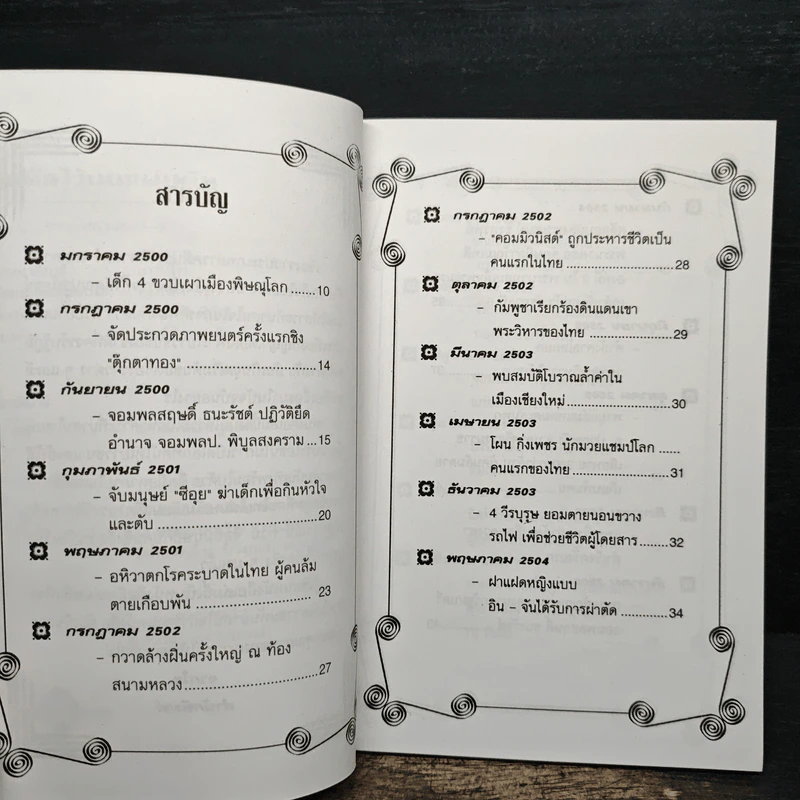 สารบัญ
มกราคม 2500
– เด็ก 4 ขวบเผาเมืองพิษณุโลก.......10
กรกฎาคม 2500
– จัดประกวดภาพยนตร์ครั้งแรกชิง
"ตุ๊กตาทอง" ..................................14
กันยายน 2500
– จอมพลสฤษดิ์ ธนะรัชต์ ปฏิวัติยึด
อำนาจ จอมพลป. พิบูลสงคราม...15
กุมภาพันธ์ 2501
– จับมนุษย์ "ซีอุย" ฆ่าเด็กเพื่อกินหัวใจ
และตับ ........................................20
พฤษภาคม 2501
– อหิวาตกโรคระบาดในไทย ผู้คนล้ม
ตายเกือบพัน ............................. 23
กรกฎาคม 2502
– กวาดล้างฝิ่นครั้งใหญ่ ณ ท้อง
สนามหลวง..................................27
กรกฎาคม 2502
– "คอมมิวนิสต์" ถูกประหารชีวิตเป็น
คนแรกในไทย ............................28
ตุลาคม 2502
– กัมพูชาเรียกร้องดินแดนเขา
พระวิหารของไทย ......................29
มีนาคม 2503
– พบสมบัติโบราณล้ำค่าใน
เมืองเชียงใหม่ ............................30
เมษายน 2503
– โผน กิ่งเพชร นักมวยแชมป์โลก ......
คนแรกของไทย ..........................31
ธันวาคม 2503
– 4 วีรบุรุษ ยอมตายนอนขวาง
รถไฟ เพื่อช่วยชีวิตผู้โดยสาร........32
พฤษภาคม 2504
– ฝาแฝดหญิงแบบ
อิน – จันได้รับการผ่าตัด .............34